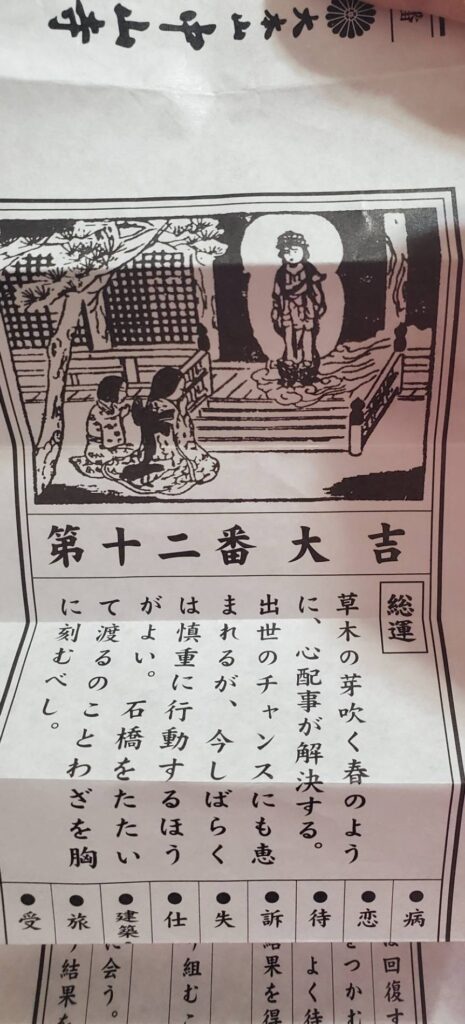 大本山中山寺
第十二番 大吉
総運
草木の芽吹く春のよう
に、心配事が解決する。
出世のチャンスにも恵
まれるが、今しばらく
は慎重に行動するほう
がよい。石橋をたたい
て渡るのことわざを胸
に刻むべし。
●病
●恋
●待
●訴
●失
●仕
●建築
●旅
●受
は回復す
をつかむ
よく待
結果を得
り組むこ
に会う。
結果を